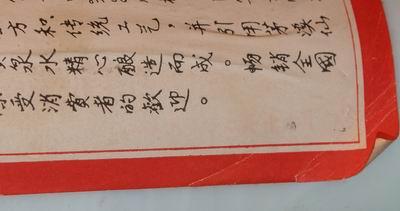 方和传统工艺，并引用茅溪仙
泉水精心酿造而成。畅销全國
受消费者的歡迎。